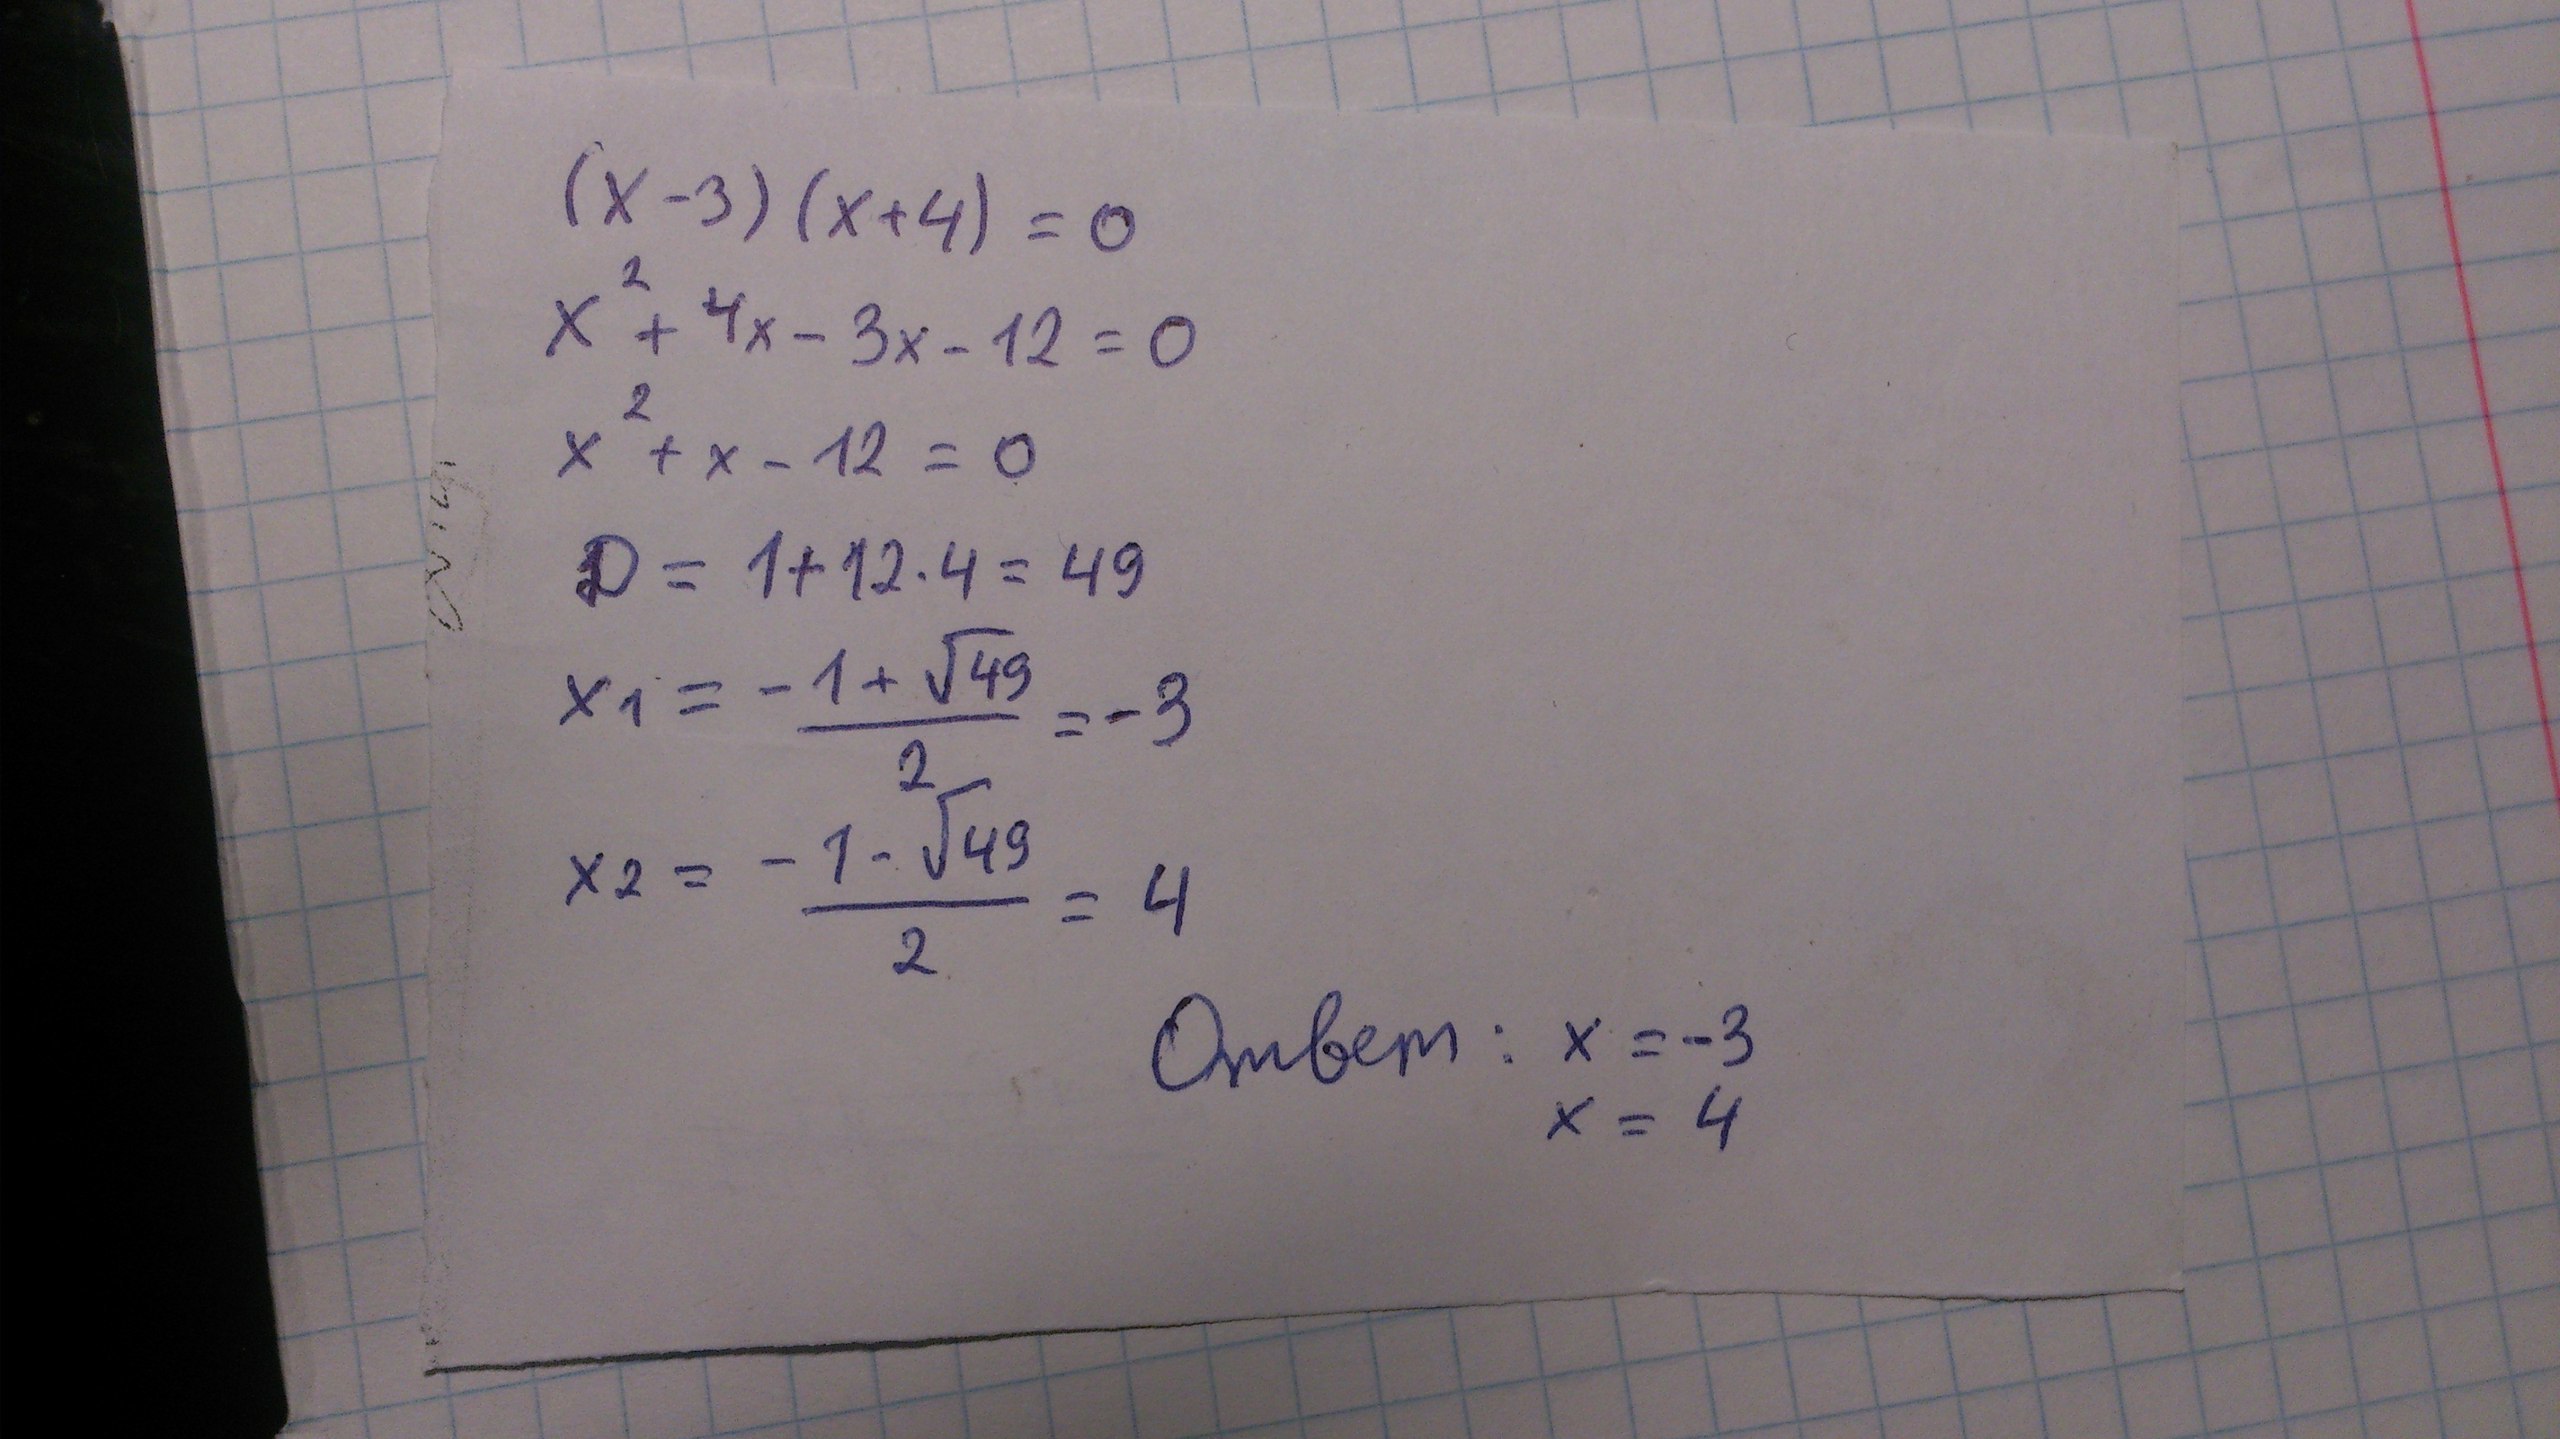 (x-3)(x+4)=0
x²+4x-3x-12=0
x²+x-12=0
D=1+12·4=49
x₁=(-1+√49)/2=-3
x₂=(-1-√49)/2=4
Ответ: x=-3
x=4